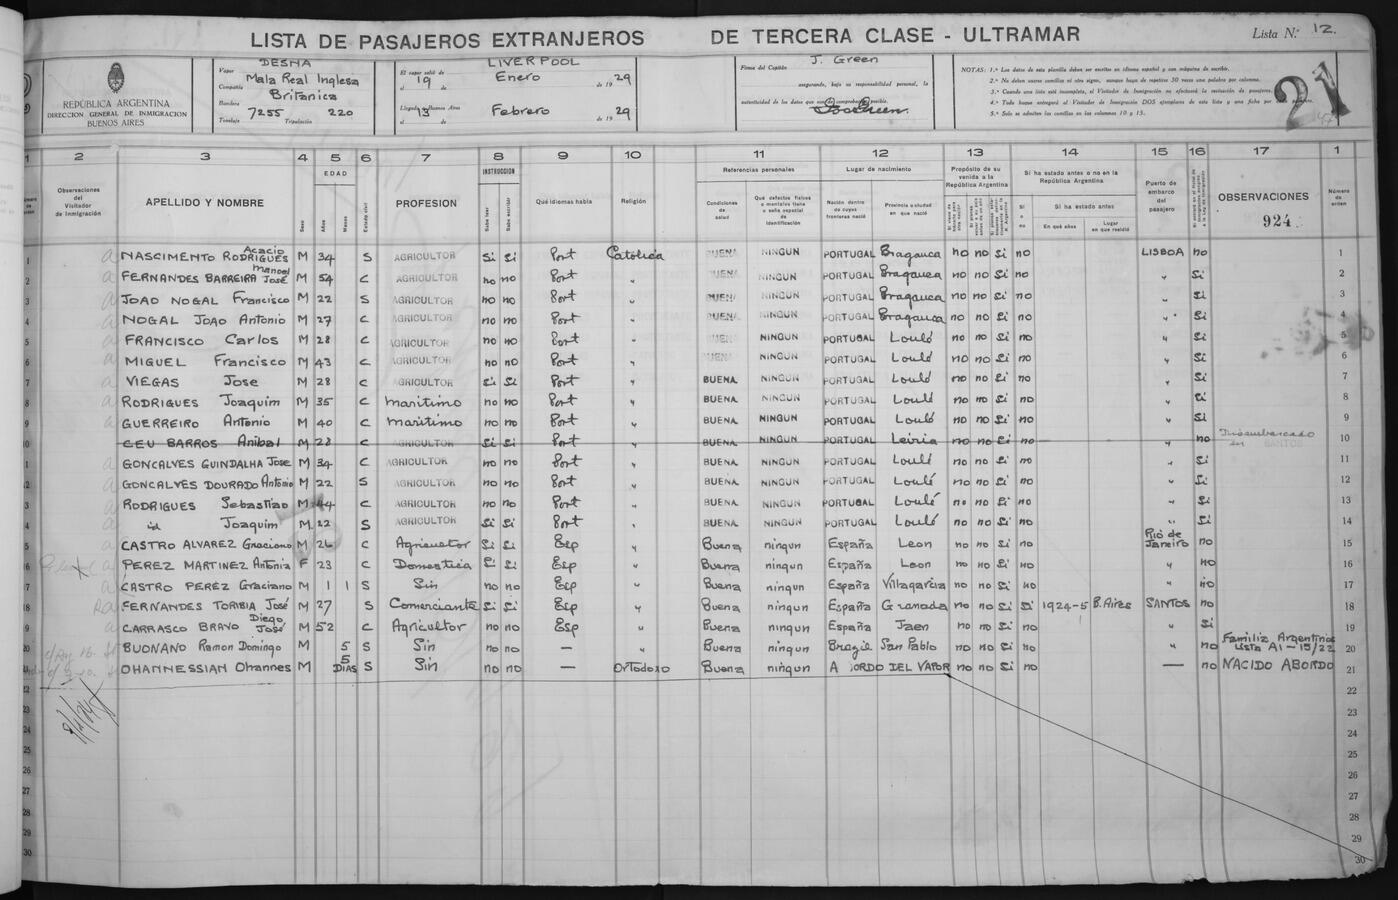 LISTA DE PASAJEROS EXTRANJEROS DE TERCERA CLASE - ULTRAMAR Lista N.° 12.
REPÚBLICA ARGENTINA
DIRECCION GENERAL DE INMIGRACION
BUENOS AIRES
Vapor DESNA
Compañía Mala Real Inglesa
Bandera Britanica
Tonelaje 7255 Tripulación 220
LIVERPOOL
El vapor salió de
el 19 Enero de 1929
Llegada a Buenos Aires
el 13 de Febrero de 1929
Firma del Capitán J. Green
asegurando, bajo su responsabilidad personal, la
autenticidad de los datos que son de comprobación posible.
NOTAS: 1.° Los datos de esta planilla deben ser escritos en idioma español y con máquina de escribir.
2.° No deben usarse comillas ni otro signo, aunque haya de repetirse 30 veces una palabra por columna.
3.° Cuando una lista esté incompleta, el Visitador de Inmigración no efectuará la visitación de pasajeros.
4.° Todo buque entregará al Visitador de Inmigración DOS ejemplares de esta lista y una ficha por
5.° Solo se admiten las comillas en las columnas 10 y 15.
21
1 2 3 4 5 6 7 8 9 10 11 12 13 14 15 16 17 1
Observaciones del Visitador de Inmigración
APELLIDO Y NOMBRE
Sexo
EDAD
Años
Meses
Estado civil
PROFESION
INSTRUCCION
Sabe leer
Sabe escribir
Qué idiomas habla
Religión
Referencias personales
Condiciones de salud
Qué defectos físicos o mentales tiene o seña especial de identificación
Lugar de nacimiento
Nación dentro de cuyas fronteras nació
Provincia o ciudad en que nació
Propósito de su venida a la República Argentina
Si ha estado antes o no en la República Argentina
Sí o no
Si ha estado antes
En qué años
Lugar en que residió
Puerto de embarco del pasajero
OBSERVACIONES
924
Número de orden
1 NASCIMENTO RODRIGUES Acacio M 34 S AGRICULTOR Si Si Port Católica BUENA NINGUN PORTUGAL Bragança no no Si no LISBOA no 1
2 FERNANDES BARREIRA Manoel José M 54 C AGRICULTOR no no Port " BUENA NINGUN PORTUGAL Bragança no no Si no " Si 2
3 JOAO NOGAL Francisco M 22 S AGRICULTOR no no Port " BUENA NINGUN PORTUGAL Bragança no no Si no " Si 3
4 NOGAL JOAO Antonio M 27 C AGRICULTOR no no Port " BUENA NINGUN PORTUGAL Bragança no no Si no " Si 4
5 FRANCISCO Carlos M 28 C AGRICULTOR no no Port " BUENA NINGUN PORTUGAL Loulé no no Si no " Si 5
6 MIGUEL Francisco M 43 C AGRICULTOR no no Port " BUENA NINGUN PORTUGAL Loulé no no Si no " Si 6
7 VIEGAS Jose M 28 C AGRICULTOR Si Si Port " BUENA NINGUN PORTUGAL Loulé no no Si no " Si 7
8 RODRIGUES Joaquim M 35 C Maritimo no no Port " BUENA NINGUN PORTUGAL Loulé no no Si no " Si 8
9 GUERREIRO Antonio M 40 C Maritimo no no Port " BUENA NINGUN PORTUGAL Loulé no no Si no " Si 9
10 CEU BARROS Anibal M 28 C AGRICULTOR Si Si Port " BUENA NINGUN PORTUGAL Leiria no no Si no " no Disembarcado en SANTOS 10
11 GONCALVES GUINDALHA Jose M 34 C AGRICULTOR no no Port " BUENA NINGUN PORTUGAL Loulé no no Si no " Si 11
12 GONCALVES DOURADO Antonio M 22 S AGRICULTOR no no Port " BUENA NINGUN PORTUGAL Loulé no no Si no " Si 12
13 RODRIGUES Sebastiao M 44 C AGRICULTOR no no Port " BUENA NINGUN PORTUGAL Loulé no no Si no " Si 13
14 id Joaquim M 22 S AGRICULTOR Si Si Port " BUENA NINGUN PORTUGAL Loulé no no Si no " Si 14
15 CASTRO ALVAREZ Graciano M 26 C Agricultor Si Si Esp " Buena ningun España Leon no no Si no Rio de Janeiro no 15
16 PEREZ MARTINEZ Antonia F 23 C Domestica Si Si Esp " Buena ningun España Leon no no Si no " no 16
17 CASTRO PEREZ Graciano M 1 1 S Sin no no Esp " Buena ningun España Villagarcia no no Si no " no 17
18 FERNANDES TORIBIA José M 27 S Comerciante Si Si Esp " Buena ningun España Granada no no Si Si 1924-5 B. Aires SANTOS no 18
19 CARRASCO BRAVO Diego José M 52 C Agricultor no no Esp " Buena ningun España Jaen no no Si no " Si 19
20 BUONANO Ramon Domingo M 5 S Sin no no — " Buena ningun Brazil San Pablo no no Si no " no Familia Argentinos Lista A1-15/22 20
21 OHANNESSIAN Ohannes M 5 DIAS S Sin no no — Ortodoxo Buena ningun A BORDO DEL VAPOR no no Si no — no NACIDO ABORDO 21
22
23
24
25
26
27
28
29
30